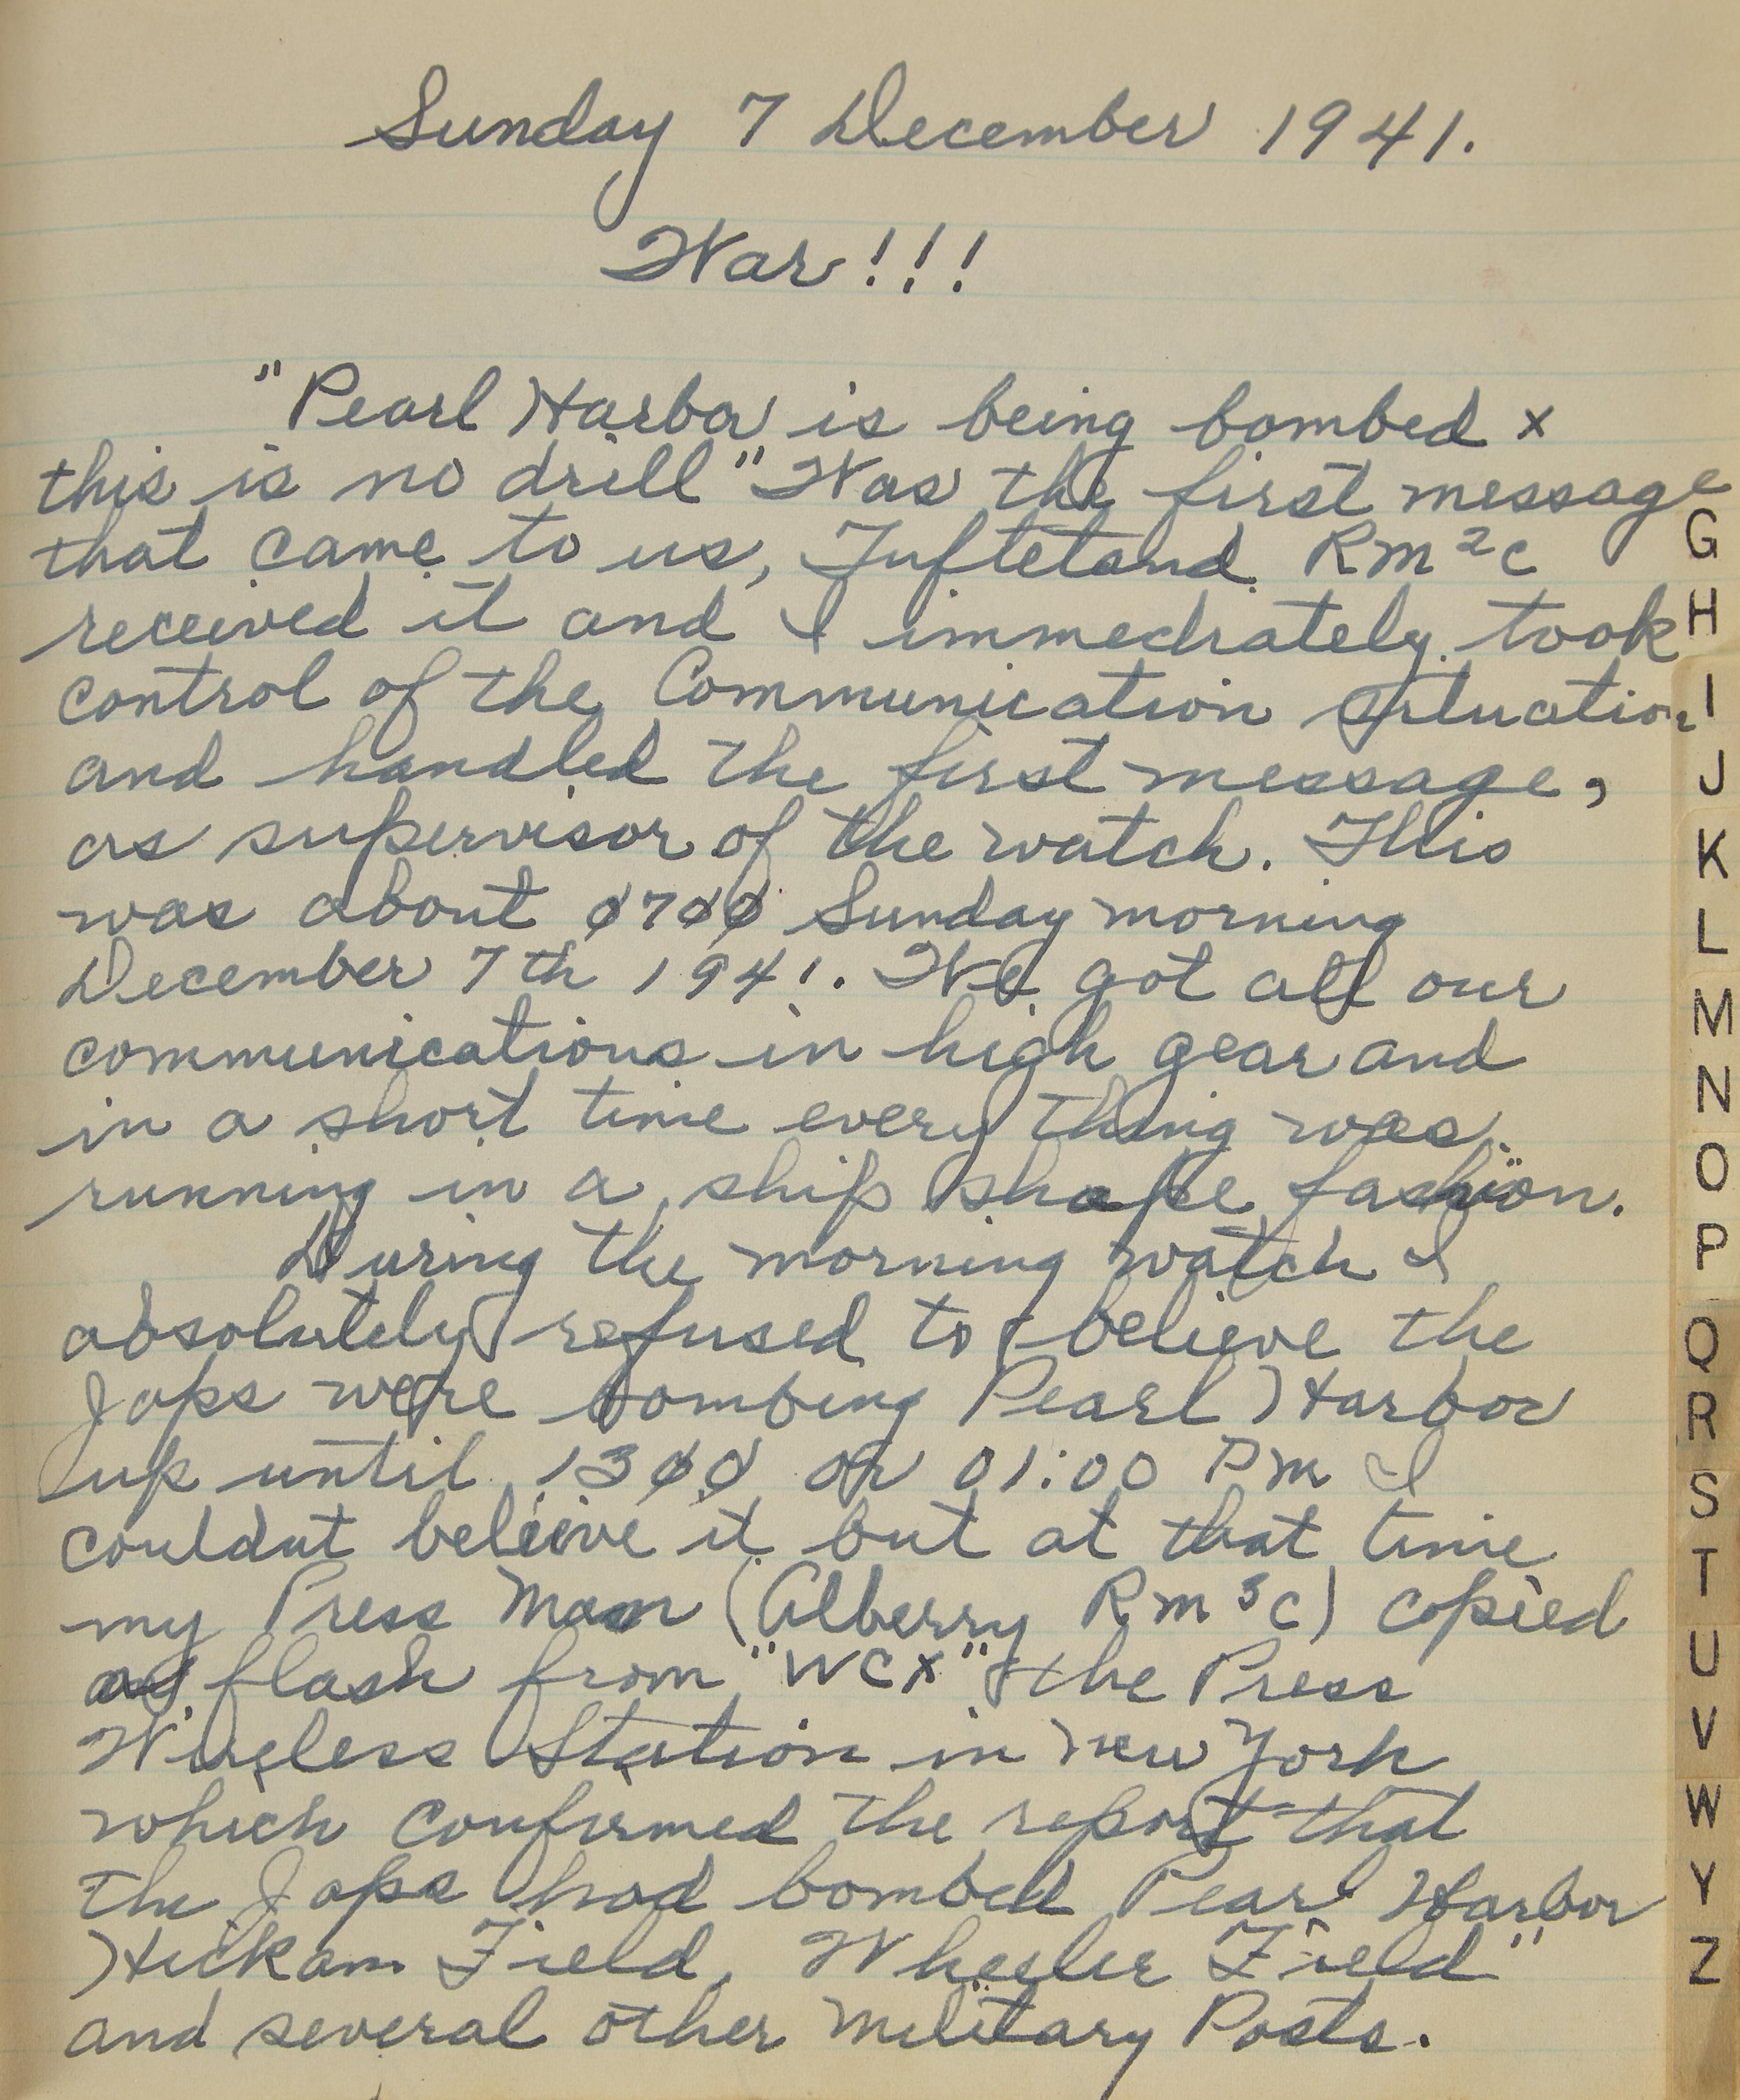 Sunday 7 December 1941.
War!!!
"Pearl Harbor is being bombed x
this is no drill" Was the first message
that came to us, Tufteland Rm 2c
received it and I immediately took
control of the Communication situation
and handled the first message,
as supervisor of the watch. This
was about 0700 Sunday morning
December 7th 1941. We got all our
communications in high gear and
in a short time every thing was
running in a ship shape fashion.
During the morning watch I
absolutely refused to believe the
Japs were bombing Pearl Harbor
up until 1300 or 01:00 Pm I
couldnt believe it but at that time
my Press Man (Alberry Rm 3c) copied
a flash from "WCX" the Press
Wireless Station in New York
which confirmed the report that
the Japs had bombed Pearl Harbor
Hickam Field, Wheeler Field"
and several other Military Posts.
G
H
I
J
K
L
M
N
O
P
Q
R
S
T
U
V
W
Y
Z